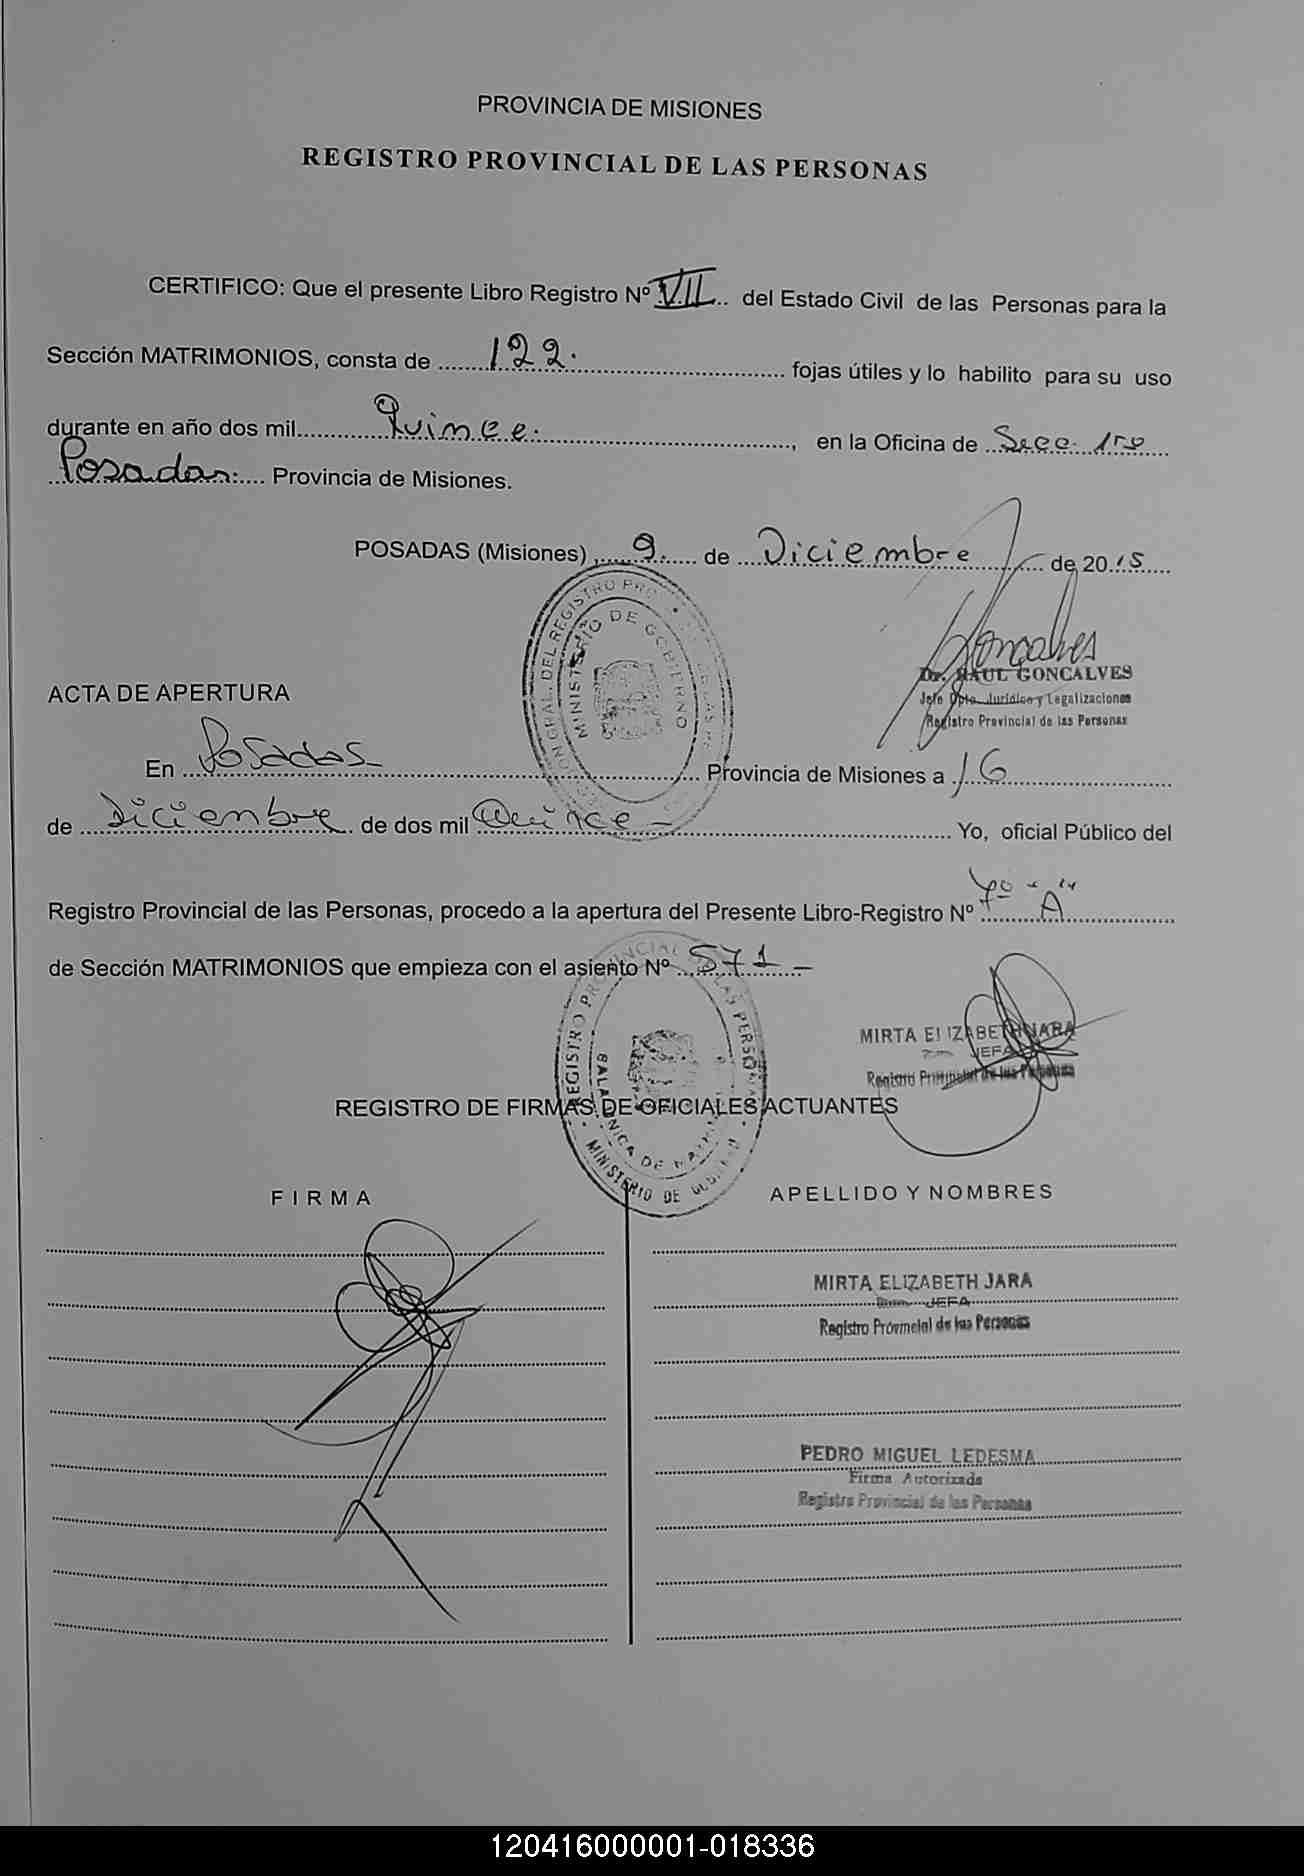 PROVINCIA DE MISIONES
REGISTRO PROVINCIAL DE LAS PERSONAS
CERTIFICO: Que el presente Libro Registro Nº VII del Estado Civil de las Personas para la
Sección MATRIMONIOS, consta de 122. fojas útiles y lo habilito para su uso
durante en año dos mil Quince. , en la Oficina de Secc. 1ra
Posadas. Provincia de Misiones.
POSADAS (Misiones) , 9. de Diciembre de 2015
Gonçalves
Dr. RAUL GONCALVES
Jefe Dpto. Jurídico y Legalizaciones
Registro Provincial de las Personas
MINISTERIO DE GOBIERNO
ACTA DE APERTURA
En Posadas Provincia de Misiones a 16
de Diciembre de dos mil Quince - Yo, oficial Público del
Registro Provincial de las Personas, procedo a la apertura del Presente Libro-Registro Nº 7º "A"
de Sección MATRIMONIOS que empieza con el asiento Nº 571 -
MIRTA ELIZABETH JARA
JEFA
Registro Provincial de las Personas
REGISTRO PROVINCIAL DE LAS PERSONAS
MINISTERIO DE GOBIERNO
REGISTRO DE FIRMAS DE OFICIALES ACTUANTES
FIRMA APELLIDO Y NOMBRES
MIRTA ELIZABETH JARA
JEFA
Registro Provincial de las Personas
PEDRO MIGUEL LEDESMA
Firma Autorizada
Registro Provincial de las Personas
120416000001-018336